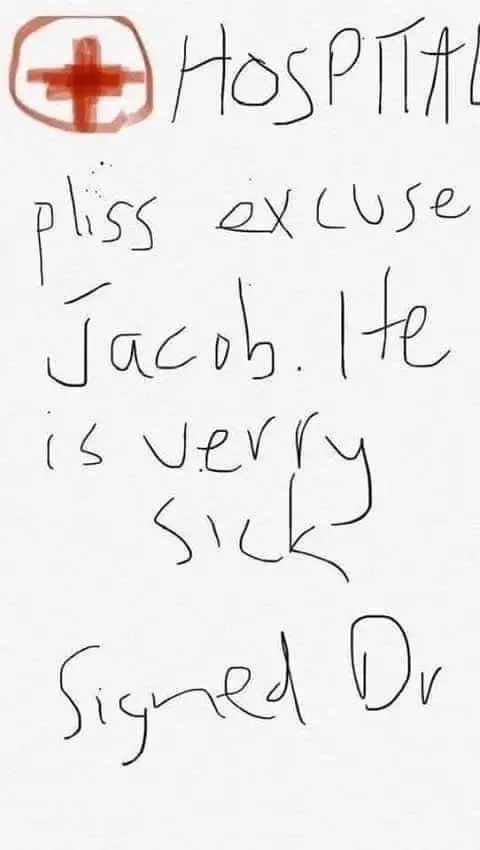 HOSPITAL
pliss excuse
Jacob. He
is verry
sick
Signed Dr